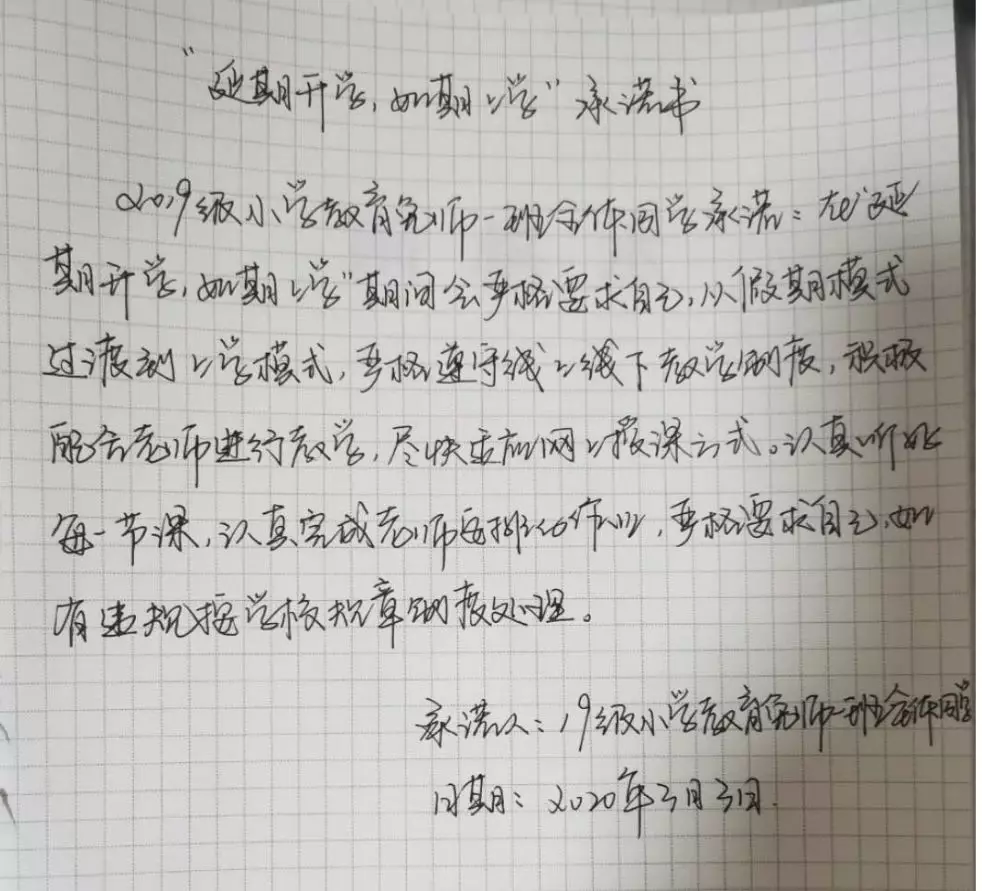 “延期开学,如期上学”承诺书
2019级小学教育免师一班全体同学承诺:在“延
期开学,如期上学”期间会严格要求自己,从假期模式
过渡到上学模式,严格遵守线上线下教学制度,积极
配合老师进行教学,尽快适应网上授课方式。认真听好
每一节课,认真完成老师安排的作业,严格要求自己,如
有违规按学校规章制度处理。
承诺人:19级小学教育免师一班全体同学
日期:2020年3月3日.